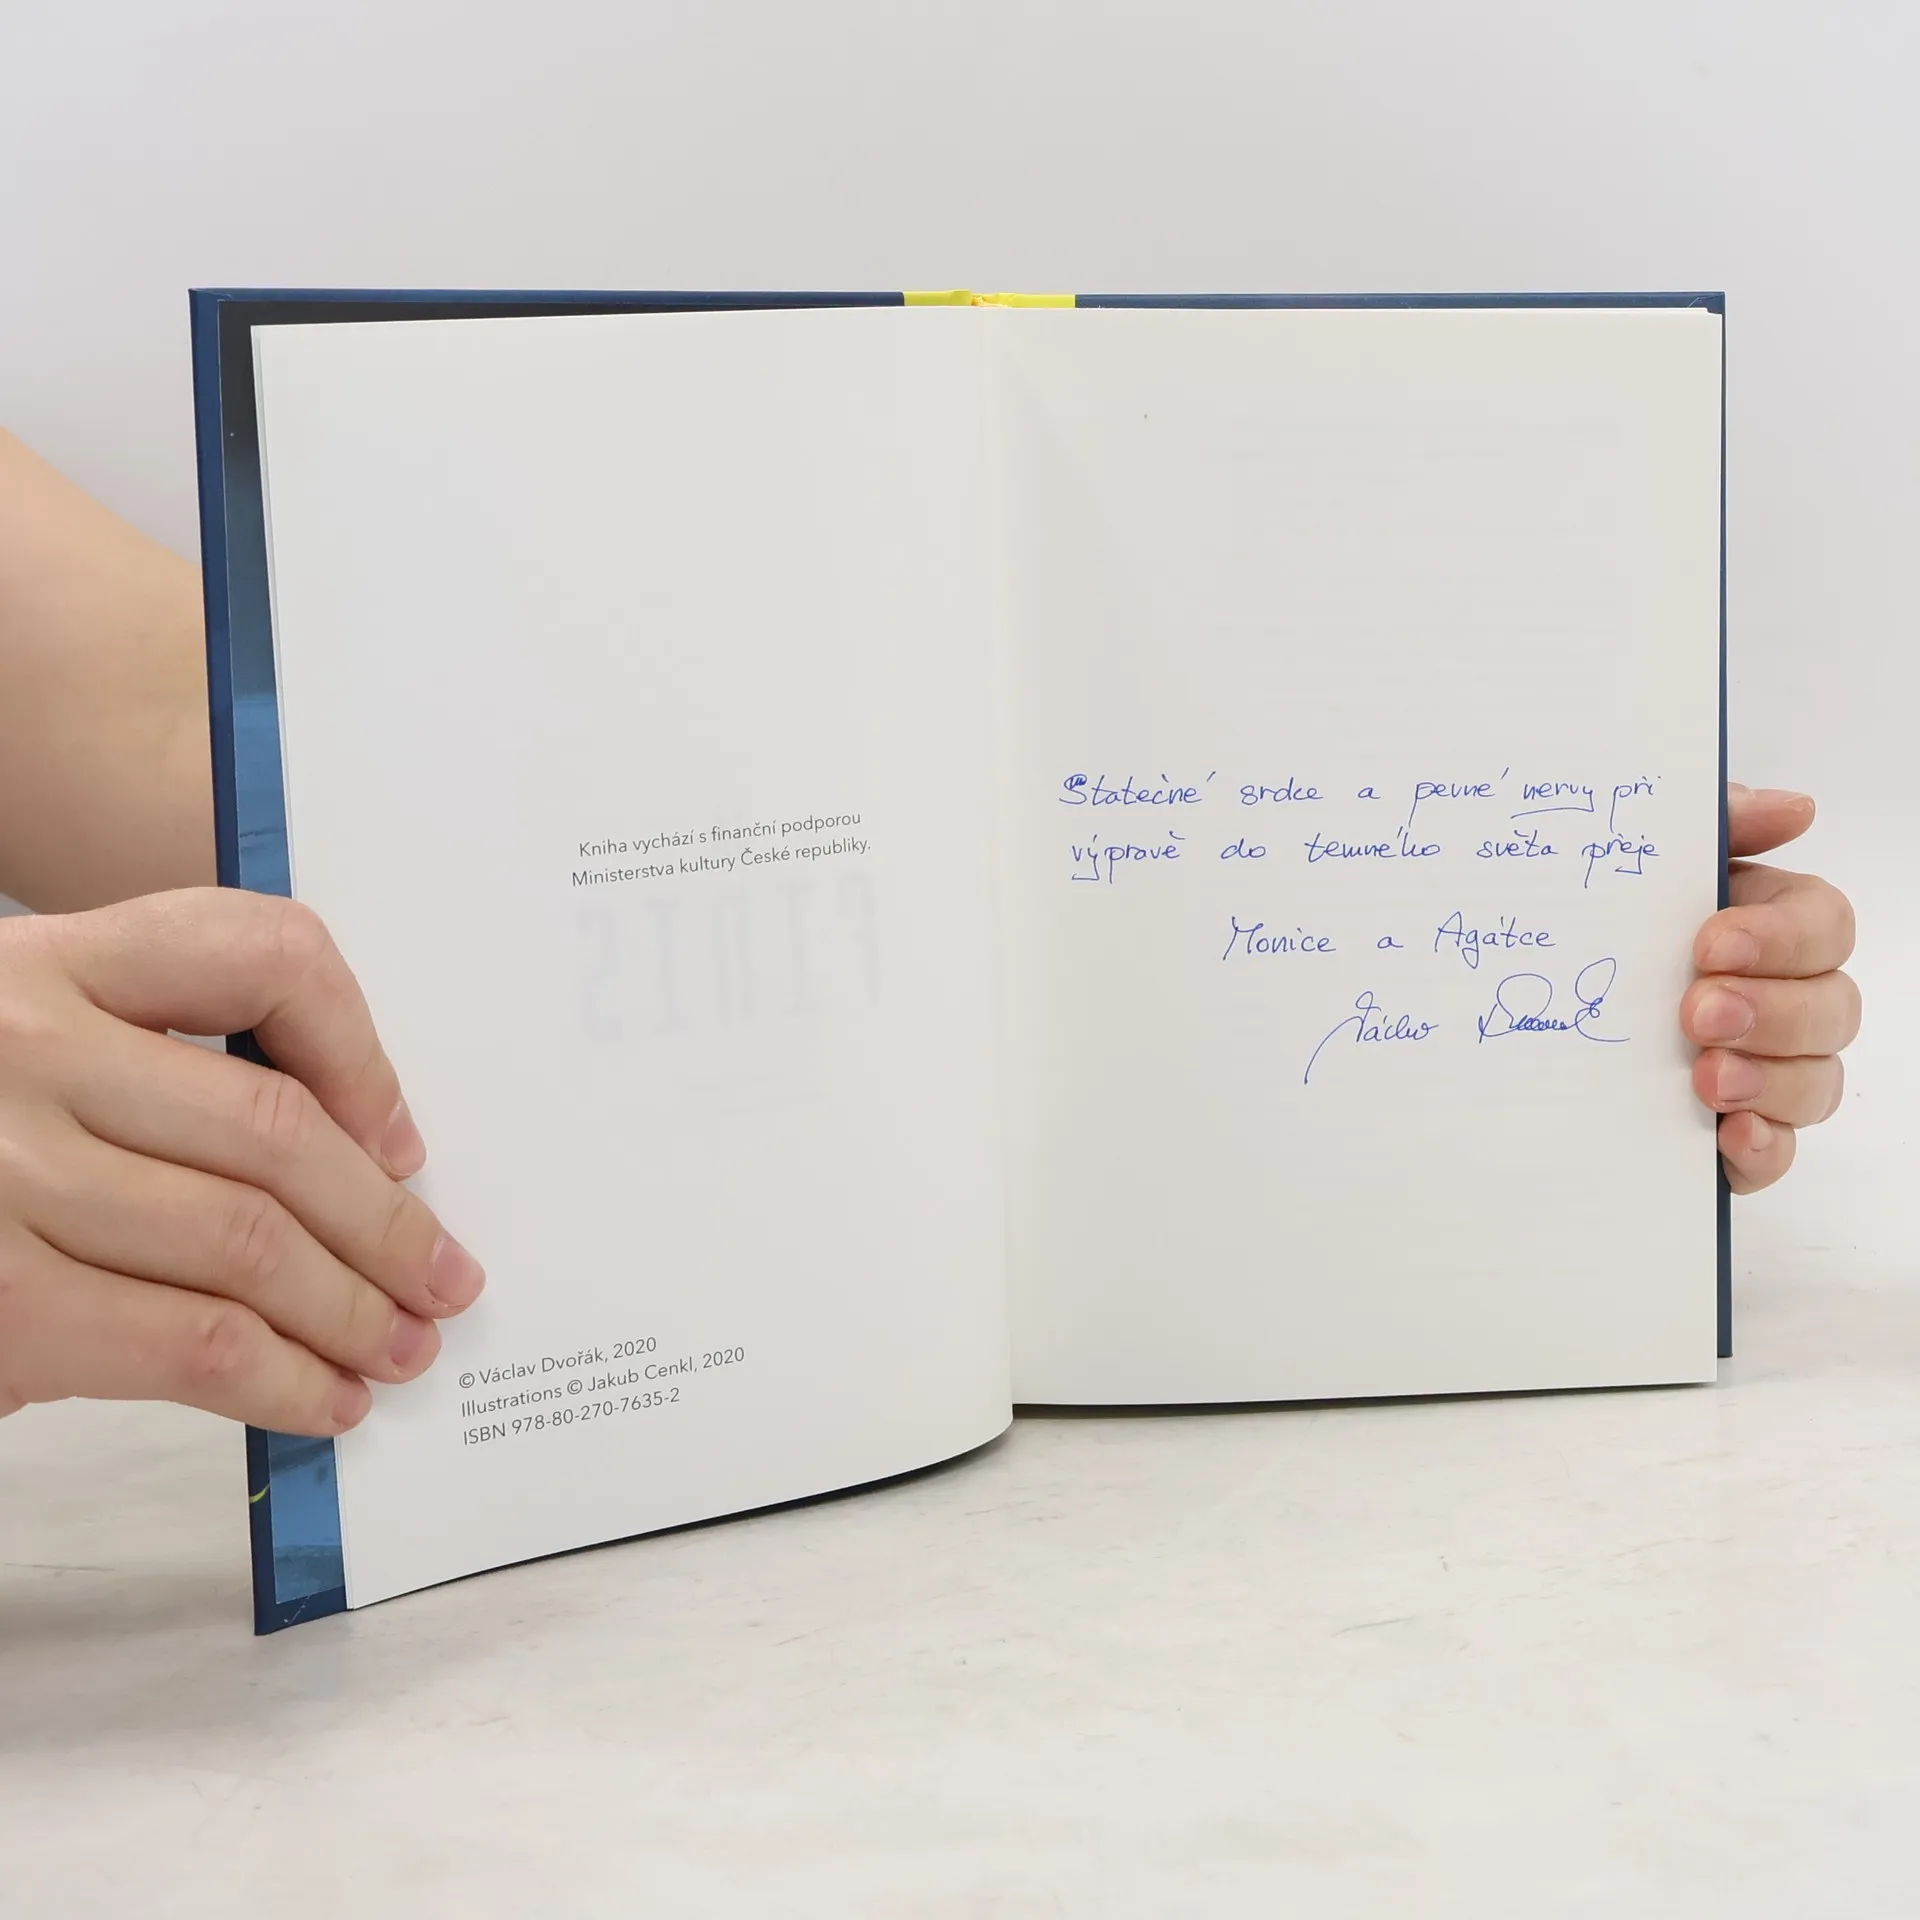 Kniha vychází s finanční podporou
Ministerstva kultury České republiky.
© Václav Dvořák, 2020
Illustrations © Jakub Cenkl, 2020
ISBN 978-80-270-7635-2
Statečné srdce a pevné nervy při
výpravě do temného světa přeje
Monice a Agátce
Václav Dvořák